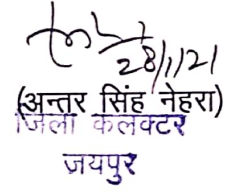 28/1/21
(अन्तर सिंह नेहरा)
जिला कलक्टर
जयपुर